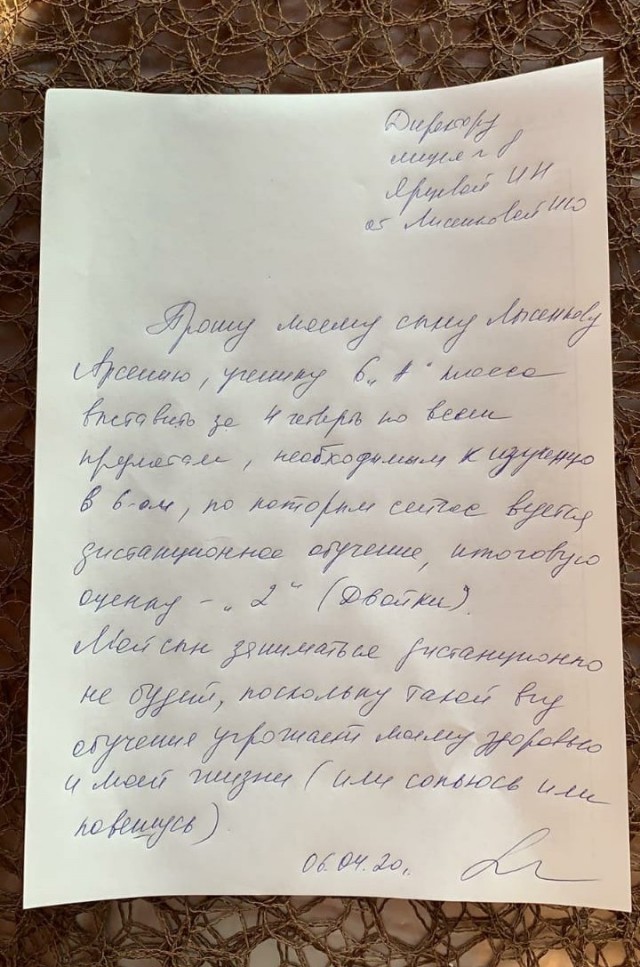 Директору
лицея № 8
Яруевой ИН
от Лысенковой НЮ
Прошу моему сыну Лысенкову
Арсению, ученику 6 „А" класса
выставить за 4 четверть по всем
предметам, необходимым к изучению
в 6-ом, по которым сейчас ведется
дистанционное обучение, итоговую
оценку - „2" (Двойки).
Мой сын заниматься дистанционно
не будет, поскольку такой вид
обучения угрожает моему здоровью
и моей жизни (или сопьюсь или
повешусь)
06.04.20г.